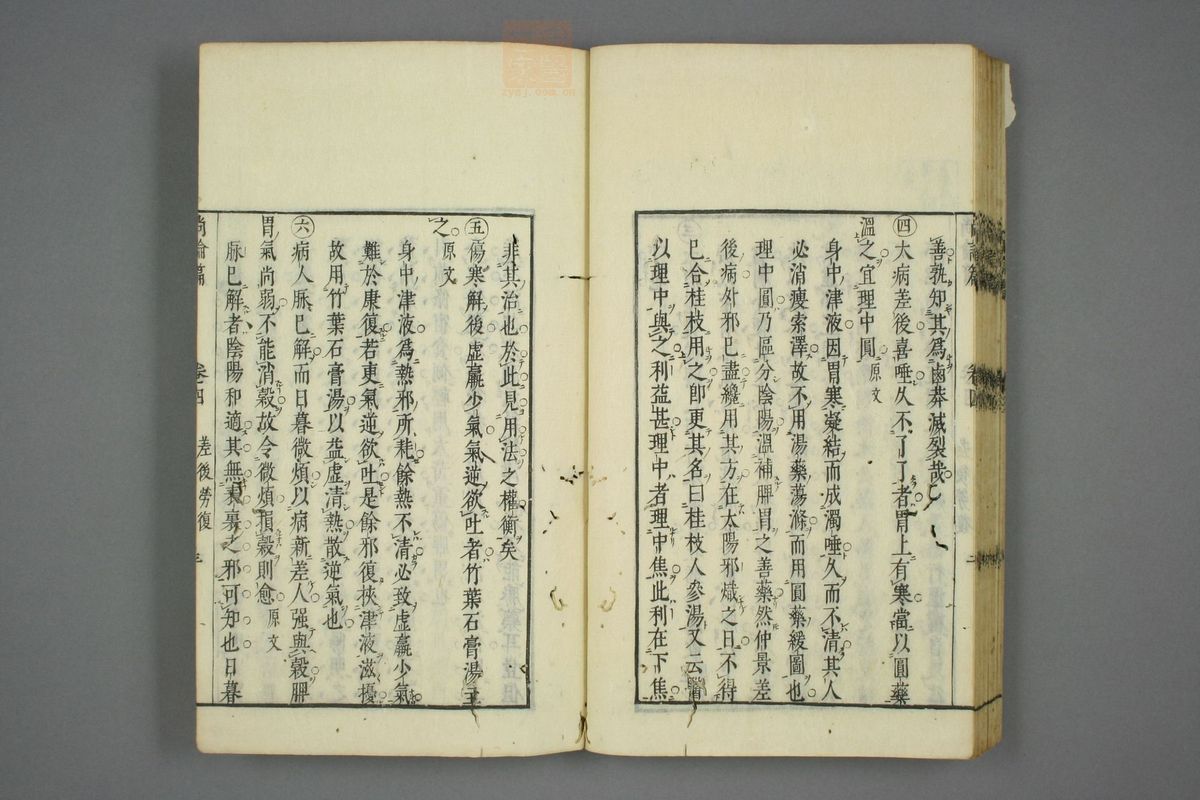 善孰知其爲鹵莽滅裂哉
㊃大病差後喜唾久不了了者胃上有寒當以圓藥
溫之宜理中圓 原文
身中津液因胃寒凝結而成濁唾久而不清其人
必消瘦索澤故不用湯藥蕩滌而用圓藥緩圖也
理中圓乃區分陰陽溫補脾胃之善藥然仲景差
後病外邪已盡纔用其方在太陽邪熾之日不得
已合桂枝用之即更其名曰桂枝人參湯又云醫
以理中與之利益甚理中者理中焦此利在下焦
非其治也於此見用法之權衡矣
㊄傷寒解後虛羸少氣氣逆欲吐者竹葉石膏湯主
之 原文
身中津液爲熱邪所耗餘熱不清必致虛羸少氣
難於康復若更氣逆欲吐是餘邪復挾津液滋擾
故用竹葉石膏湯以益虛清熱散逆氣也
㊅病人脈已解而日暮微煩以病新差人强與穀脾
胃氣尚弱不能消穀故令微煩損穀則愈 原文
脈已解者陰陽和適其無表裏之邪可知也日暮
尚論篇 卷四 差後勞復
zysj.com.cn